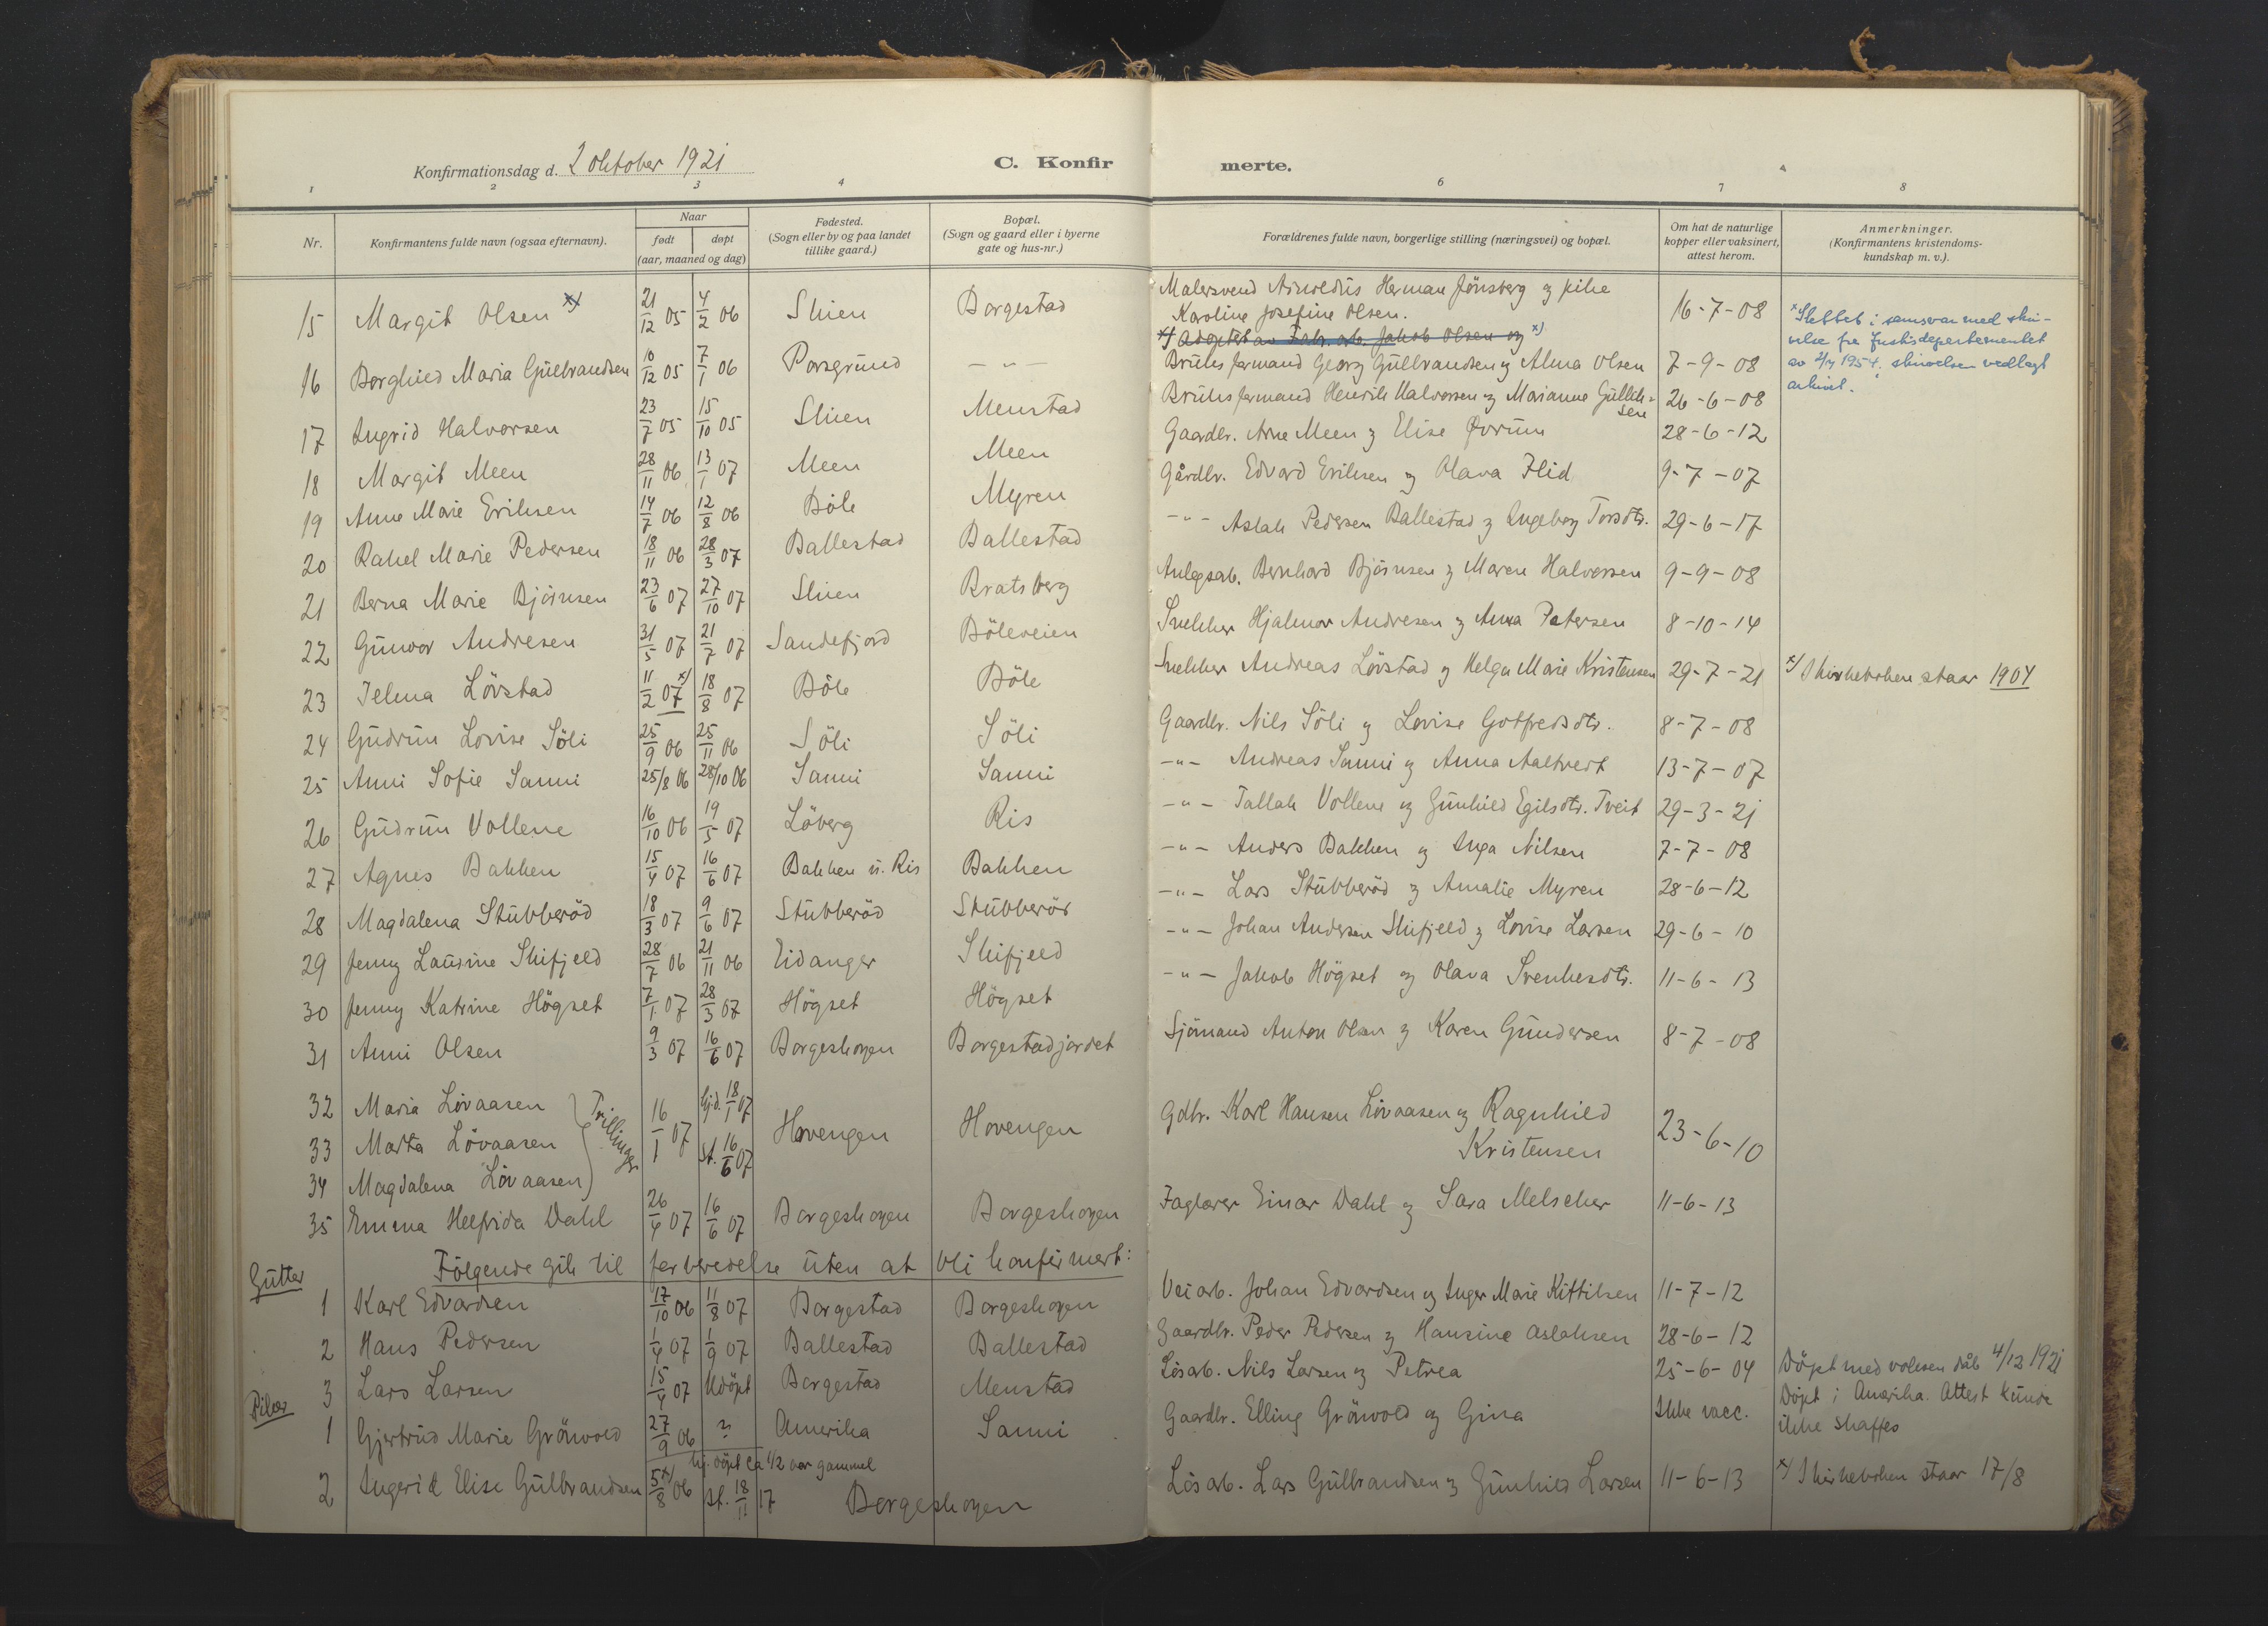 Konfirmationsdag d. 2 oktober 1921
C. Konfirmerte.
1 2 3 4 6 7 8
Nr. Konfirmantens fulde navn (ogsaa efternavn). Naar født døpt (aar, maaned og dag) Fødested. (Sogn eller by og paa landet tillike gaard.) Bopæl. (Sogn og gaard eller i byerne gate og hus-nr.) Forældrenes fulde navn, borgerlige stilling (næringsvei) og bopæl. Om hat de naturlige kopper eller vaksinert, attest herom. Anmerkninger. (Konfirmantens kristendoms- kundskap m. v.).
15 Margit Olsen x) 21/12 05 4/2 06 Skien Borgestad Malersvend Arnoldus Herman Jönsberg og pike Karoline Josefine Olsen. 16-7-08
x) Adoptert av Fabr. arb. Jakob Olsen og x)
x Slettet i samsvar med skri-
velse fra Justisdepartementet
av 1954, skrivelsen vedlagt
arkivet.
16 Borghild Maria Gulbrandsen 10/12 05 7/1 06 Porsgrund -"- Bruksformand Georg Gulbrandsen og Alma Olsen 7-9-08
17 Ingrid Halvorsen 23/7 05 15/10 05 Skien Menstad Bruksformand Henrik Halvorsen og Marianne Gullik-sen 26-6-08
18 Margit Meen 28/11 06 13/1 07 Meen Meen Gaardbr. Arne Meen og Elise Øvrum 28-6-12
19 Anne Marie Eriksen 14/7 06 12/8 06 Böle Myren Gårdbr. Edvard Eriksen og Olava Flid 9-7-07
20 Rakel Marie Pedersen 18/11 06 28/3 07 Ballestad Ballestad -"- Aslak Pedersen Ballestad og Ingeborg Torsdtr. 29-6-17
21 Berna Marie Björnsen 23/6 07 27/10 07 Skien Bratsberg Anlegsarb. Bernhard Björnsen og Maren Halvorsen 9-9-08
22 Gunvor Andresen 31/5 07 21/7 07 Sandefjord Böleveien Snekker Hjalmar Andresen og Anna Petersen 8-10-14
23 Jelena Lövstad 11/2 07 x) 18/8 07 Böle Böle Snekker Andreas Lövstad og Helga Marie Kristensen 29-7-21 x) I kirkeboken staar 1904
24 Gudrun Lovise Söli 25/9 06 25/11 06 Söli Söli Gaardbr. Nils Söli og Lovise Gotfredsdtr. 8-7-08
25 Anni Sofie Sanni 25/8 06 28/10 06 Sanni Sanni -"- Andreas Sanni og Anna Aaltvedt 13-7-07
26 Gudrun Vollene 16/10 06 19/5 07 Löberg Ris -"- Tallak Vollene og Gunhild Egilsdtr. Tveit 29-3-21
27 Agnes Bakken 15/4 07 16/6 07 Bakken u. Ris Bakken -"- Anders Bakken og Inga Nilsen 7-7-08
28 Magdalena Stubberöd 18/3 07 9/6 07 Stubberöd Stubberöd -"- Lars Stubberöd og Amalie Myren 28-6-12
29 Jenny Laurine Skifjeld 28/7 06 21/11 06 Eidanger Skifjeld -"- Johan Andersen Skifjeld og Lovise Larsen 29-6-10
30 Jenny Katrine Högset 7/1 07 28/3 07 Högset Högset -"- Jakob Högset og Olava Svenkesdtr. 11-6-13
31 Anni Olsen 9/3 07 16/6 07 Borgeskogen Borgestadjordet Sjömand Anton Olsen og Karen Gundersen 8-7-08
32 Maria Lövaasen
33 Marta Lövaasen } Trillinger 16/1 07 hjd. 18/1 07 st. 16/6 07 Hovengen Hovengen Gdbr. Karl Hansen Lövaasen og Ragnhild Kristensen 23-6-10
34 Magdalena Lövaasen
35 Emma Helfrida Dahl 26/4 07 16/6 07 Borgeskogen Borgeskogen Faglærer Einar Dahl og Sara Melscher 11-6-13
Fölgende gik til forberedelse uten at bli konfirmert:
Gutter
1 Karl Edvardsen 17/10 06 11/8 07 Borgestad Borgeskogen Veiarb. Johan Edvardsen og Inger Marie Kittilsen 11-7-12
2 Hans Pedersen 1/4 07 1/9 07 Ballestad Ballestad Gaardbr. Peder Pedersen og Hansine Aslaksen 28-6-12
3 Lars Larsen 15/4 07 Udöpt Borgestad Menstad Lösarb. Nils Larsen og Petrea 25-6-04 Döpt med voksen dåb 4/12 1921
Piker
1 Gjertrud Marie Grönvold 27/9 06 ? Amerika Sanni Gaardbr. Elling Grönvold og Gina Ikke vacc. Döpt i Amerika. Attest kunde ikke skaffes
2 Ingerid Elise Gulbrandsen 5/8 06 x) hj. döpt ca 1/2 aar gammel st. 18/11 17 Borgeskogen Lösarb. Lars Gulbrandsen og Gunhild Larsen 11-6-13 x) I kirkeboken staar 17/8